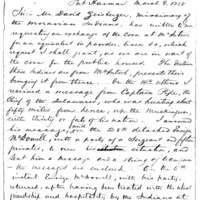 Fort Harmar March 9, 1788
Sir: Mr. David Zeisberger, missionary of
the moravian Indians, has written to me
requesting an exchange of the corn at McIntosh
for an equivalent in powder, lead, &c, which
request I shall grant, as we are in want of
the corn for the public horses. The distance
these Indians are from McIntosh, prevents their
bringing it from thence. On the
received a message from Captain Pipe, the
Chief of the Delawares, who was hunting about
fifty miles from hence, up the Muskingum
with thirty or forty of his nation. I answered
his message, and on the 25th detached Ensign
McDowell, with a party of a Sergeant and fifteen
privates, to view his situation, and to
sent him a message and a string of wampum
the message is enclosed. On the 6th
instant Ensign McDowell, with his party,
returned, after having been treated with the utmost
friendship and hospitality by the Indians at